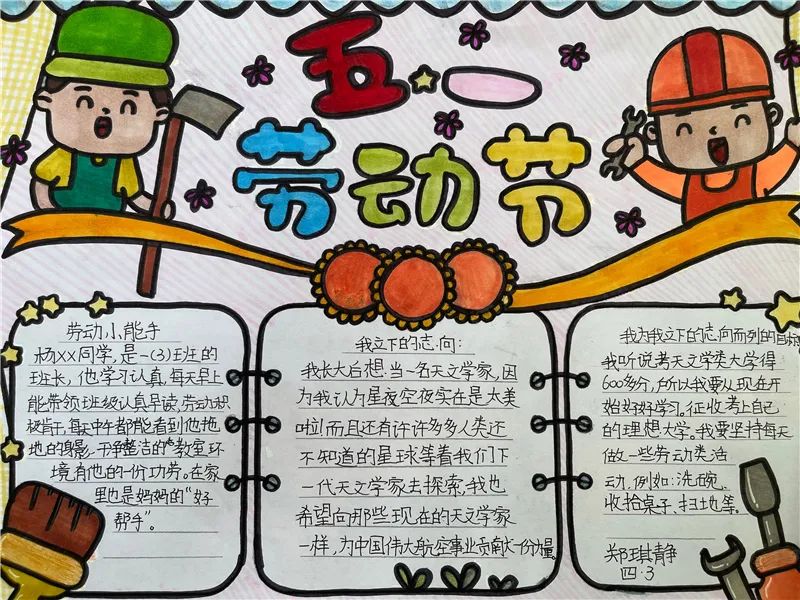 五·一
劳动节
劳动小能手
杨XX同学,是一(3)班的
班长,他学习认真,每天早上
能带领班级认真早读,劳动积
极肯干,每天中午都能看到他拖
地的身影,干净整洁的教室环
境有他的一份功劳。在家
里也是妈妈的“好
帮手”。
我立下的志向:
我长大后想当一名天文学家,因
为我认为星夜空夜实在是太美
啦!而且还有许许多多人类还
不知道的星球等着我们下
一代天文学家去探索,我也
希望向那些现在的天文学家
一样,为中国伟大航空事业贡献一份力量。
我为我立下的志向而列的目标
我听说考天文学类大学得
600多分,所以我要从现在开
始好好学习。征收考上自己
的理想大学。我要坚持每天
做一些劳动类活
动,例如:洗碗、
收拾桌子、扫地等。
郑琪静
四·3